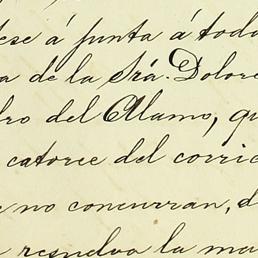 ese á junta á toda
a de la Srá. Dolore
ro del Alamo, qu
catorce del corri
no concurran, d
resuelva la ma